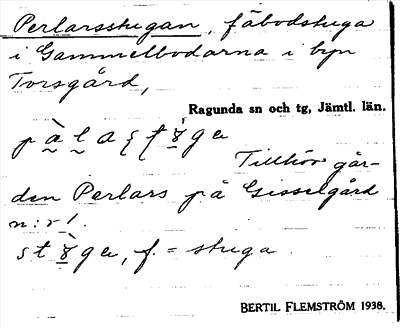 Perlarsstugan, fäbodstuga
i Gammelbodarna i byn
Torsgård,
Ragunda sn och tg, Jämtl. län.
Tillhör går-
den Perlars på Gisselgård
n:r 1.
f. = stuga.
BERTIL FLEMSTRÖM 1938.